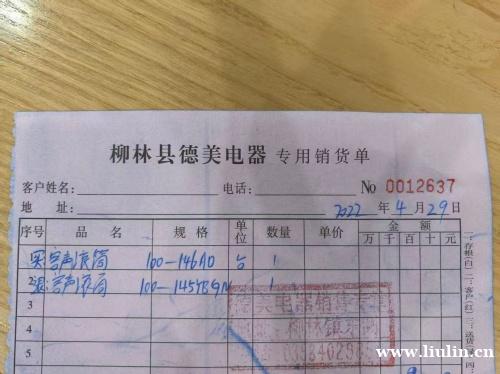 柳林县德美电器 专用销货单
客户姓名: 电话: No 0012637
地 址: 2022 年 4 月 29 日
序号 品 名 规 格 单位 数量 单价 金 额
万 千 百 十 元
容声冰箱 100-146AD 台 1
2 容声 100-145YBGN 1
3
4
5
德美电器销售
柳林镇
一:存根(白) 二:客户(红) 三:送货 四:
www.liulin.cn